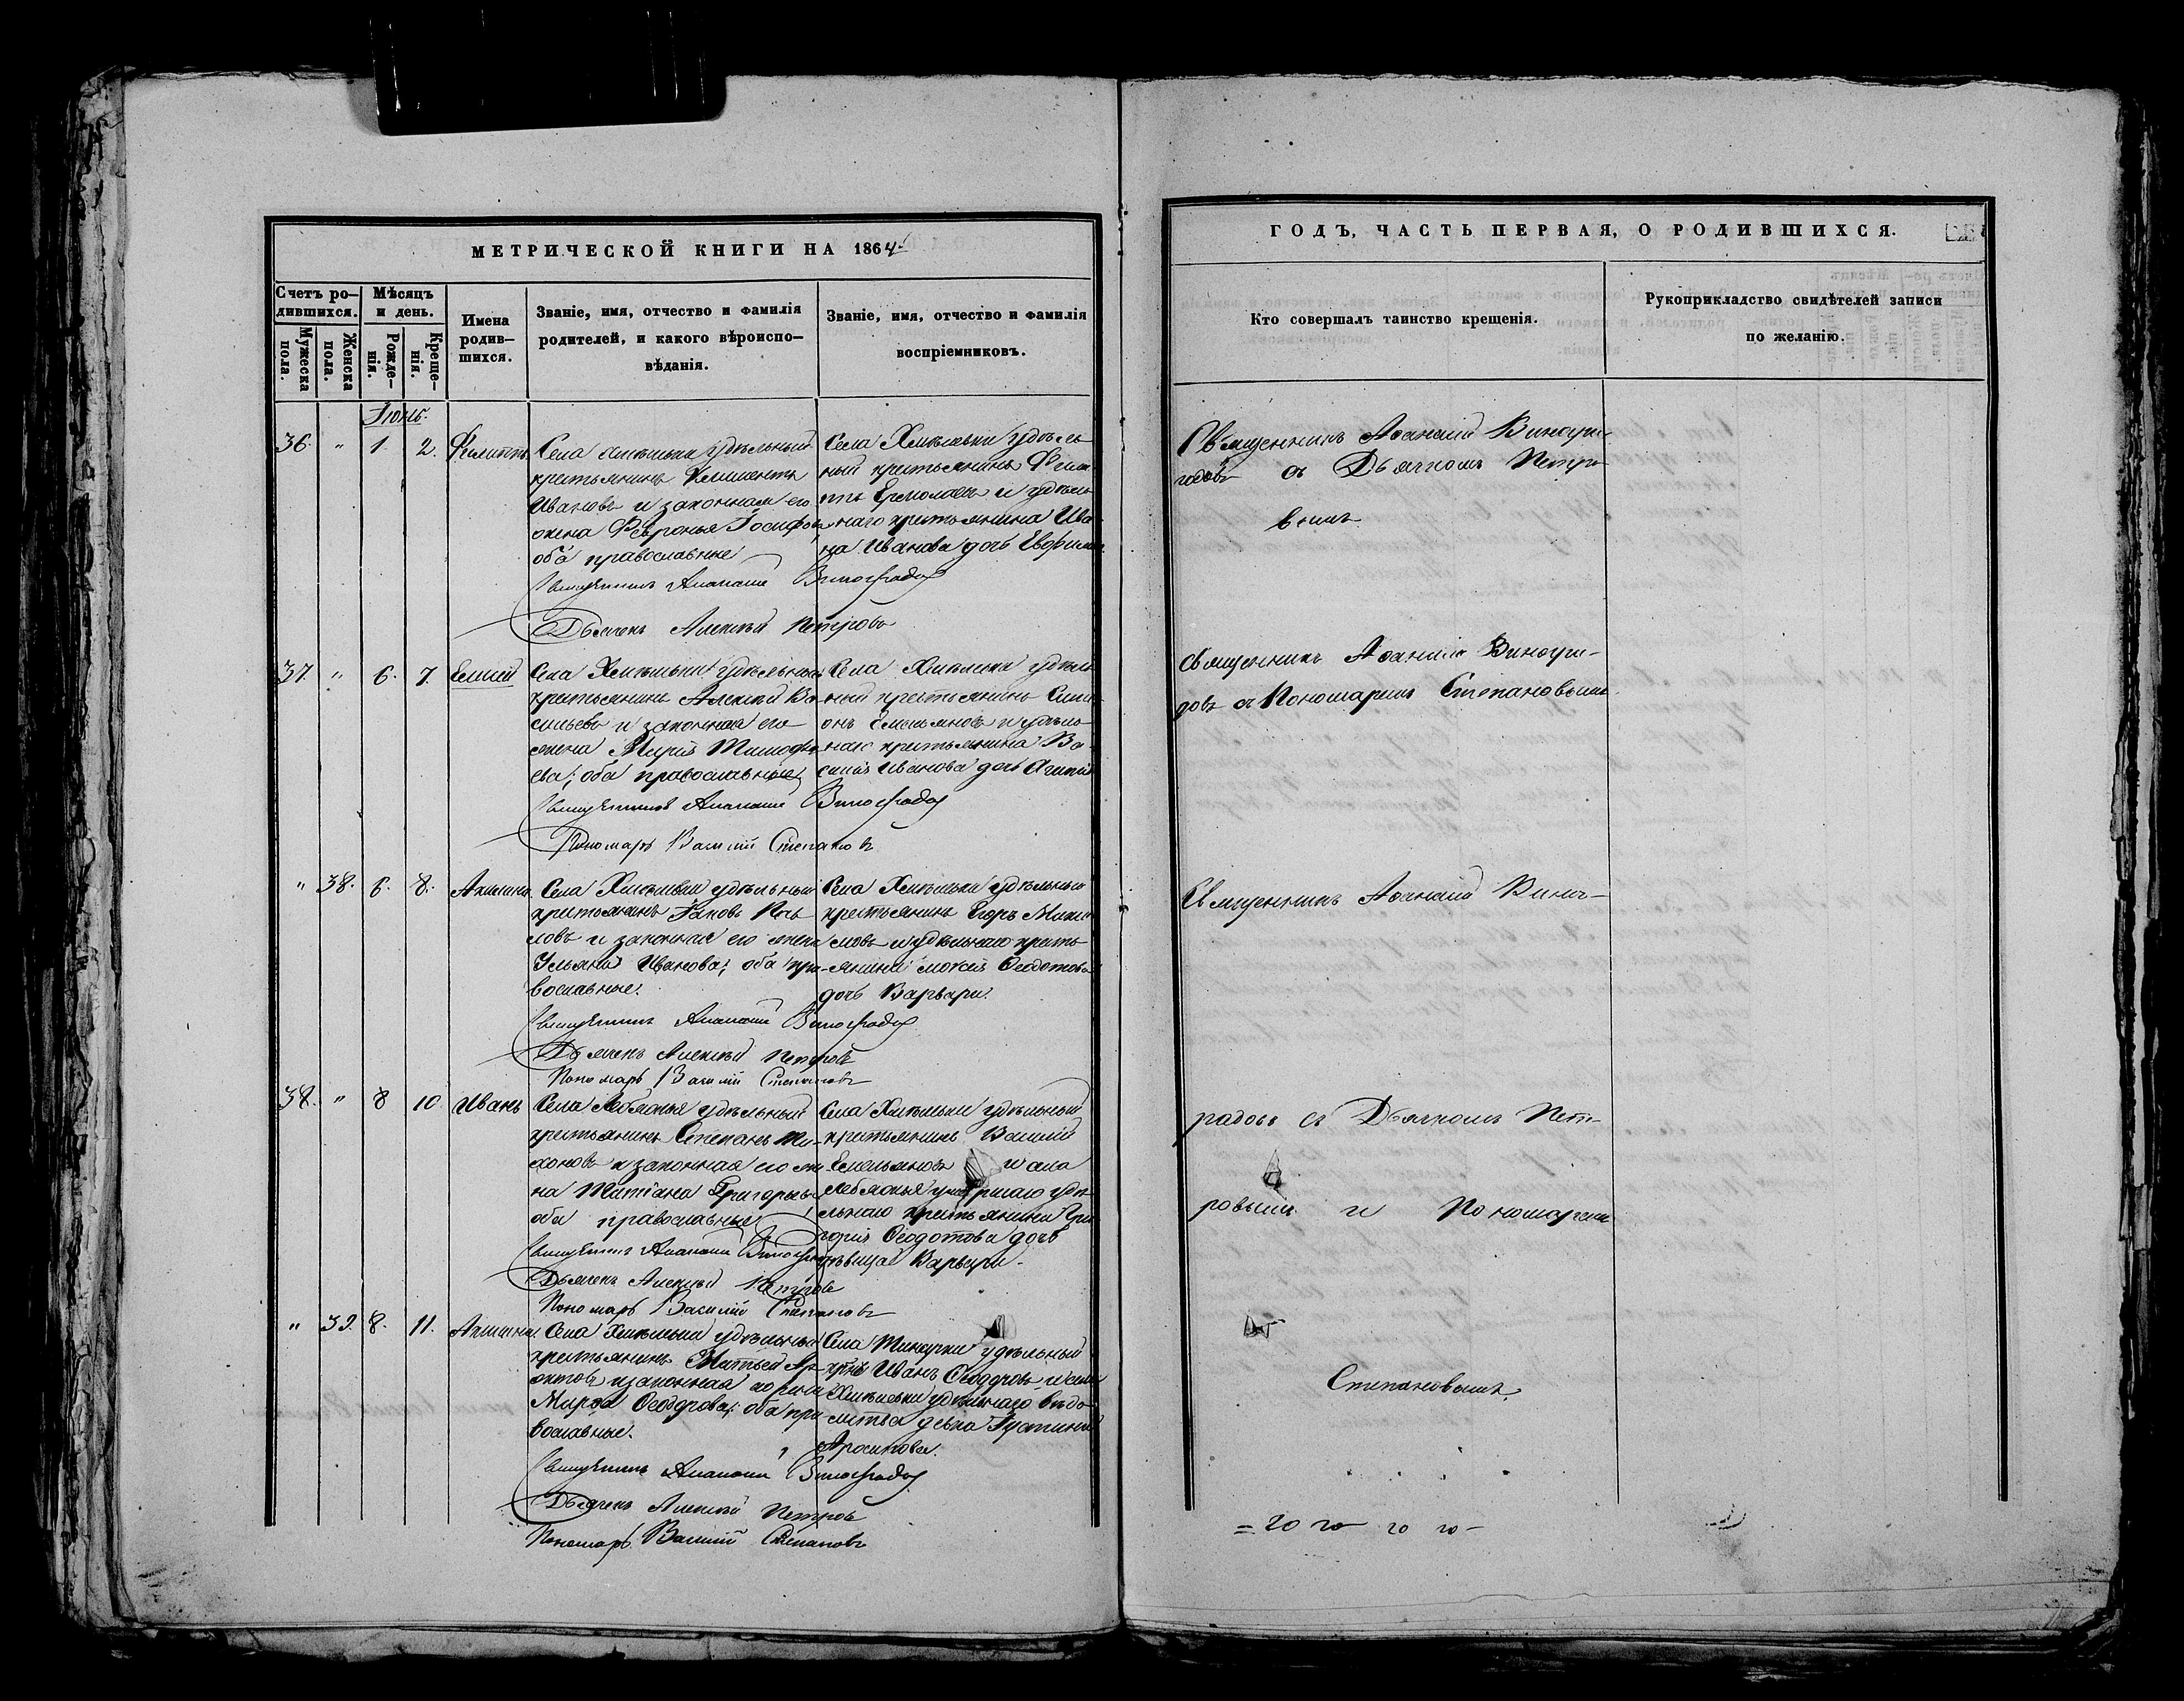 МЕТРИЧЕСКОЙ КНИГИ НА 1864
Счетъ ро-
дившихся.
Мужеска
пола.
Женска
пола.
Мѣсяцъ
и день.
Рожде-
нія.
Креще-
нія.
Имена
родив-
шихся.
Званіе, имя, отчество и фамилія
родителей, и какого вѣроиспо-
вѣданія.
Званіе, имя, отчество и фамилія
воспріемниковъ.
Іюнь.
36. " 1. 2. Филиппъ.
Села удѣльный
крестьянинъ Климентъ
Ивановъ и законная его
жена Іосифова
оба православные
Священникъ Виноградовъ
Дьячекъ Алексѣй Петровъ
Села Хмѣлевки удѣль-
ный крестьянинъ Фили-
ппъ Ермолаевъ и удѣль-
наго крестьянина Ива-
на Иванова дочь
37. " 6. 7. Елисей
Села Хмѣлевки удѣльный
крестьянинъ Алексѣй Ва-
сильевъ и законная его
жена Марія Тимофе-
ева; оба православные
Священникъ Виноградовъ
Пономарь Василій Степановъ
Села Хмѣлевки удѣль-
ный крестьянинъ Сими-
онъ Емельяновъ и удѣль-
наго крестьянина Ва-
силія Иванова дочь
" 38. 6. 8. Акилина
Села Хмѣлевки удѣльный
крестьянинъ Іаковъ
и законная его жена
Ульяна Иванова; оба пра-
вославные.
Священникъ Виноградовъ
Дьячекъ Алексѣй Петровъ
Пономарь Василій Степановъ
Села Хмѣлевки удѣльный
крестьянинъ Егоръ Михаи-
ловъ и удѣльнаго кресть-
янина Моисея Ѳеодотова
дочь Варвара.
38. " 8 10 Иванъ
Села Лебяжья удѣльный
крестьянинъ Степанъ Ти-
хоновъ и законная его же-
на Татіана Григорьева
оба православные
Священникъ Виноградовъ
Дьячекъ Алексѣй Петровъ
Пономарь Василій Степановъ
Села Хмѣлевки удѣльный
крестьянинъ Василій
Емельяновъ и села
Лебяжья умершаго удѣ-
льнаго крестьянина Гри-
горія Ѳеодотова дочь
дѣвица Варвара.
" 39. 8. 11. Акилина
Села Хмѣлевки удѣльный
крестьянинъ Матѳей
и законная его жена
Марѳа Ѳеодорова; оба пра-
вославные.
Священникъ Виноградовъ
Дьячекъ Алексѣй Петровъ
Пономарь Василій Степановъ
Села удѣльный
Иванъ Ѳеодоровъ и села
Хмѣлевки удѣльнаго вѣдо-
мства дѣвка Іустина
ГОДЪ, ЧАСТЬ ПЕРВАЯ, О РОДИВШИХСЯ.
Кто совершалъ таинство крещенія.
Рукоприкладство свидѣтелей записи
по желанію.
Священникъ Аѳанасій Виногра-
довъ съ Дьячкомъ Петро-
вымъ
Священникъ Аѳанасій Виногра-
довъ съ Пономаремъ Степановымъ
Священникъ Аѳанасій Виног-
радовъ съ Дьячкомъ Пет-
ровымъ и Пономаремъ
Степановымъ.